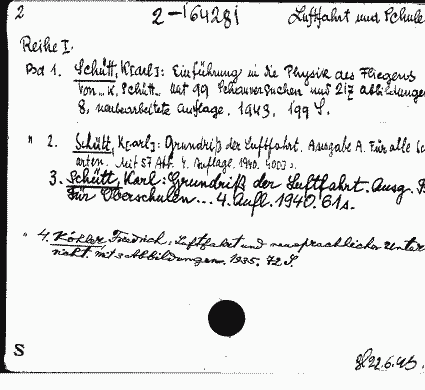 2 2-164281 Luftfahrt und Schule
Reihe I.
Bd 1. Schütt, Karl: Einführung in die Physik des Fliegens
Von... K. Schütt. Mit 99 Schauversuchen und 217 Abbildungen
8, neubearbeitete Auflage. 1943. 199 S.
" 2. Schütt, Karl: Grundriß der Luftfahrt. Ausgabe A. Für alle
arten. Mit 57 Abb. 4. Auflage. 1940.
3. Schütt, Karl: Grundriß der Luftfahrt. Ausg. B
Für Oberschulen... 4. Aufl. 1940. 61 s.
" 4. Köhler, Friedrich: Luftfahrt und neusprachlicher Unter
richt. mit 3 Abbildungen. 1935. 72 S.
S 22.6.45.